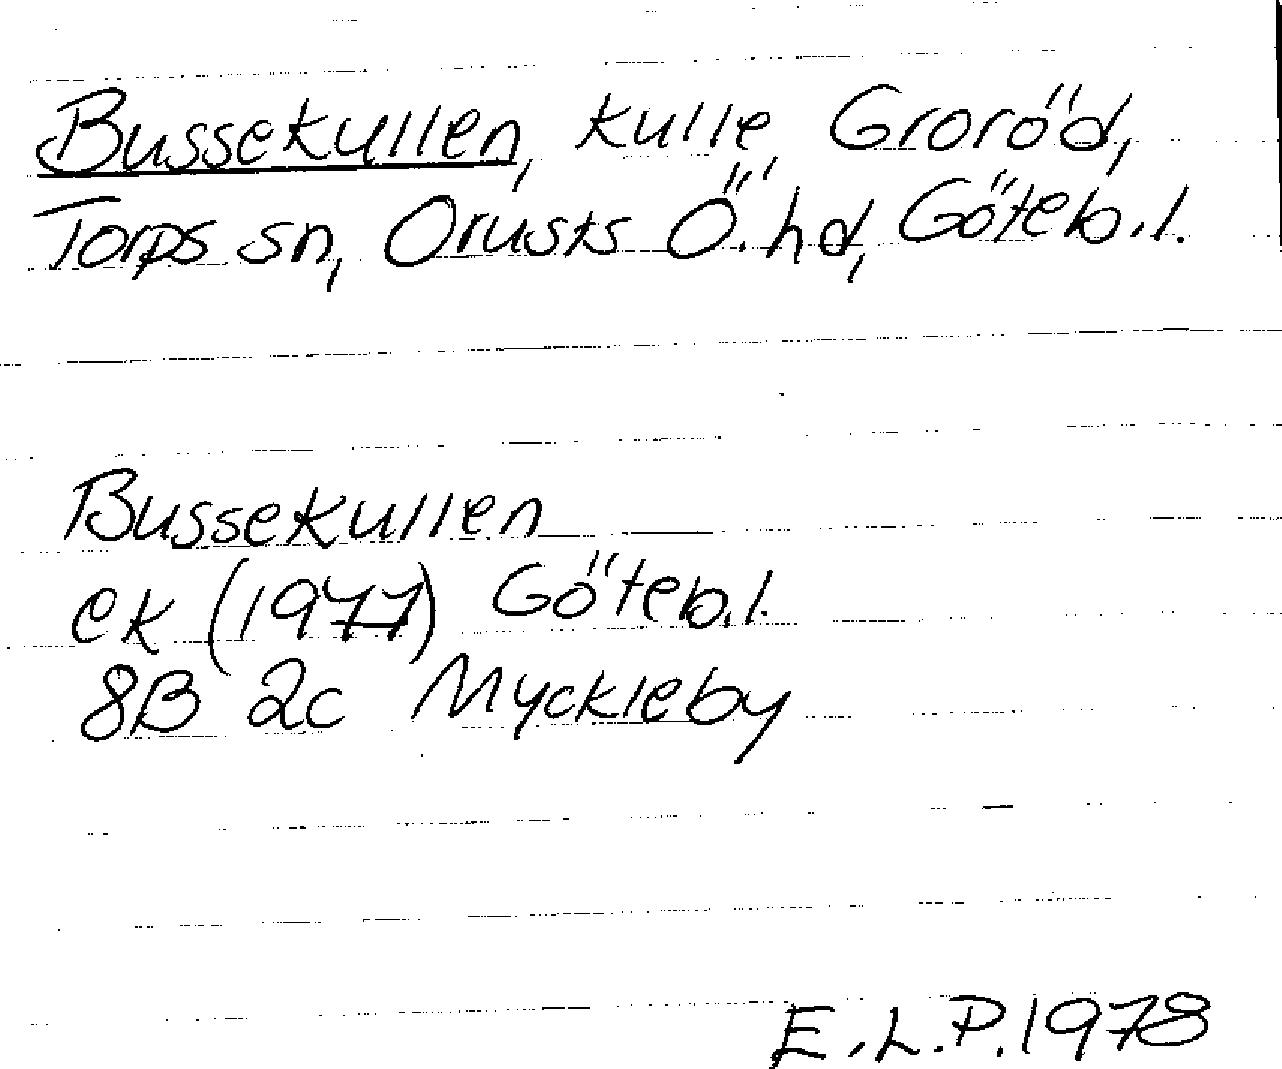 Bussekullen, kulle, Groröd,
Torps sn, Orusts Ö. hd, Göteb. l.
Bussekullen
ek (1977) Göteb. l.
8B 2c Myckleby
E. L. P. 1978